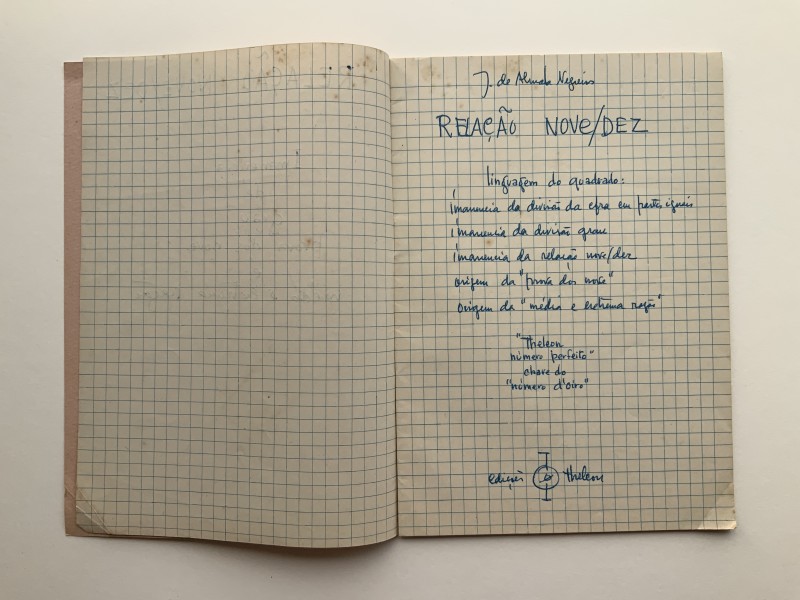 J. de Almada Negreiros
RELAÇÃO NOVE/DEZ
linguagem do quadrado:
imanencia da divisão da esfra em partes iguais
imanencia da divisão grau
imanencia da relação nove/dez
origem da "prova dos nove"
origem da "média e extrema razão"
"Theleon
número perfeito"
chave do
"número d'oiro"
edições theleon